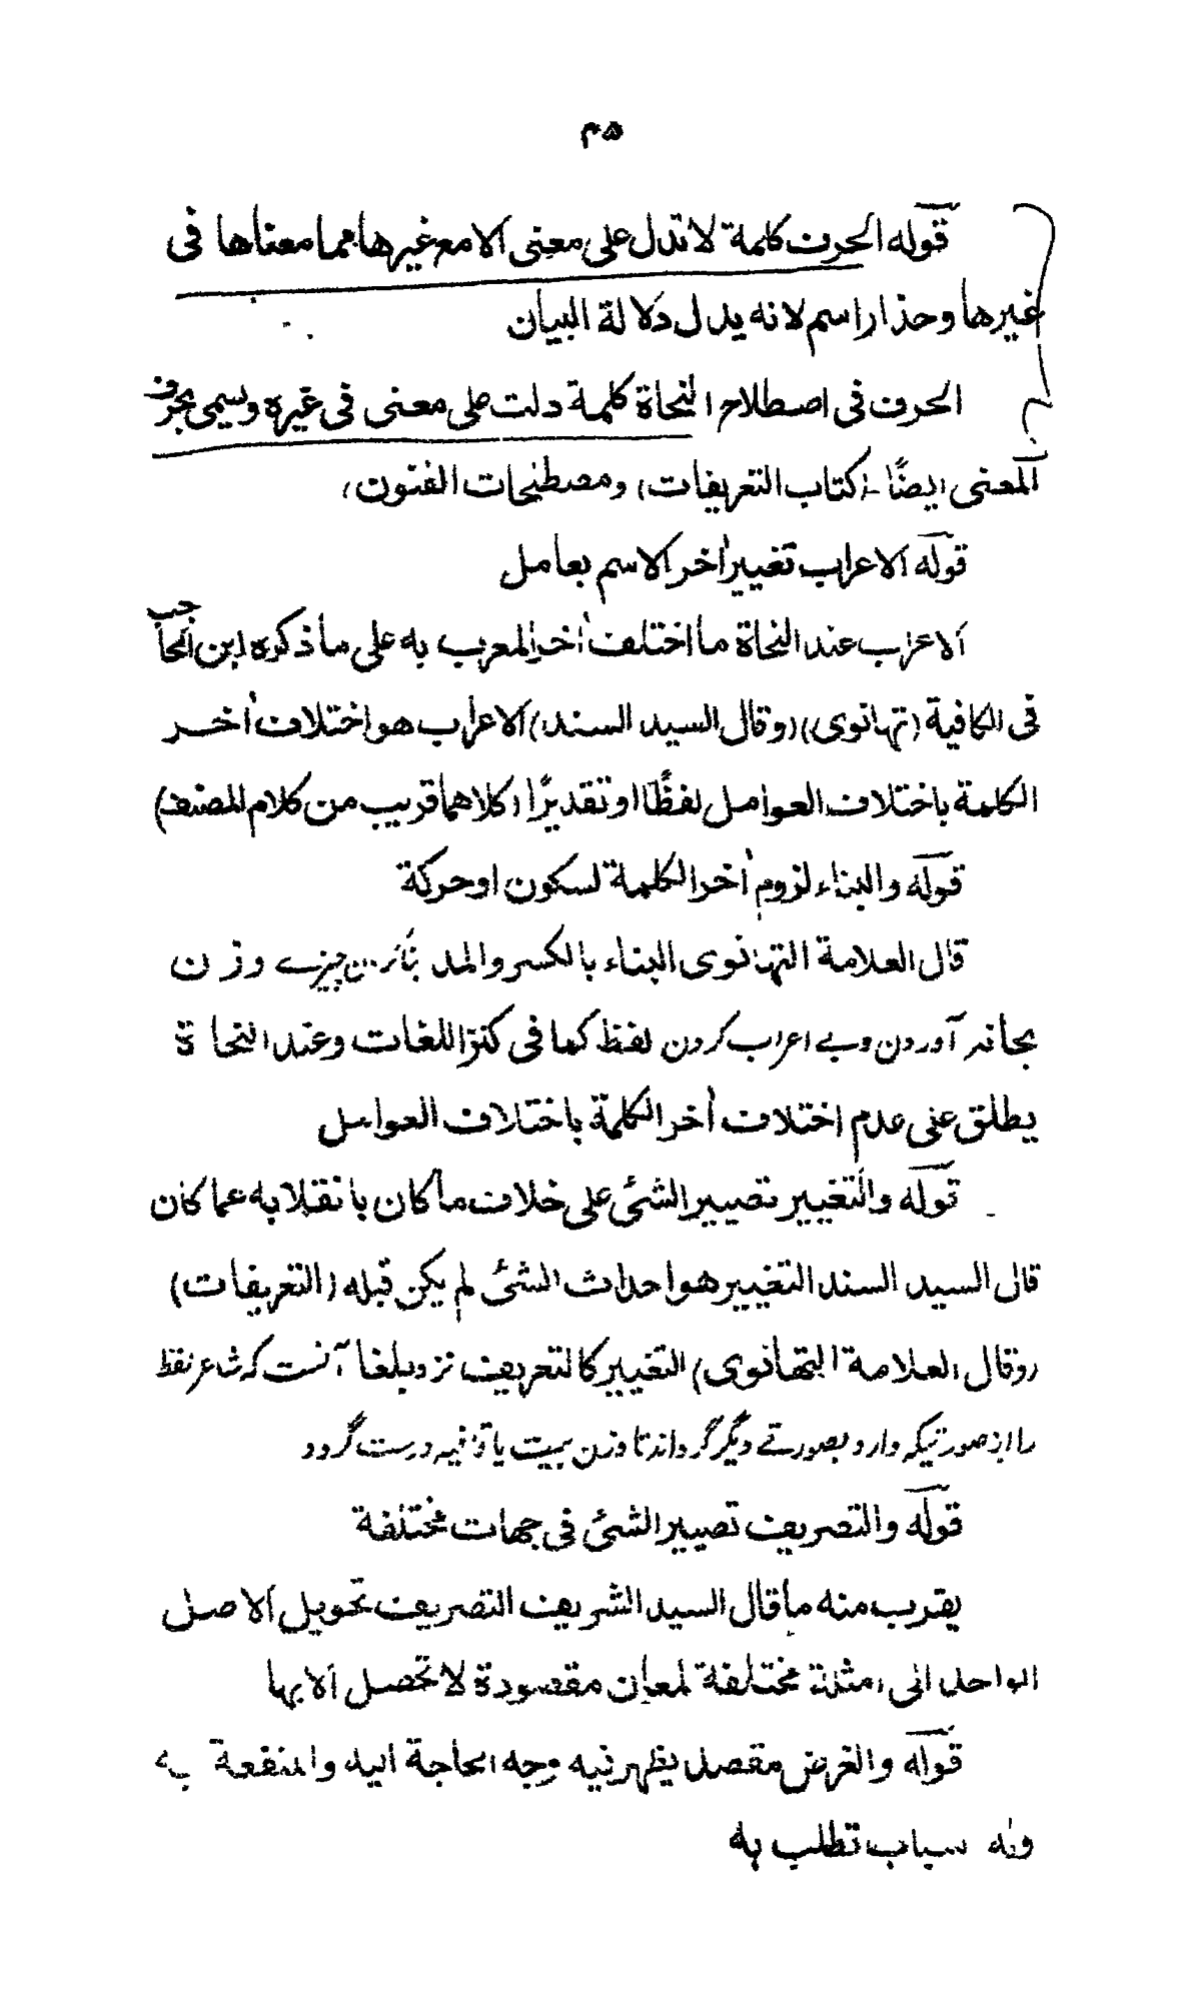 ۴۵
قوله الحرف كلمة لا تدل على معنى الا مع غيرها مما معناها فى
غيرها وحذار اسم لانه يدل دلالة البيان
الحرف فى اصطلاح النحاة كلمة دلت على معنى فى غيره ويسمى بحرف
المعنى ايضًا - (كتاب التعريفات) ومصطلحات الفنون)
قوله الاعراب تغيير اٰخر الاسم بعامل
الاعراب عند النحاة ما اختلف اٰخر المعرب به على ما ذكره ابن الحاجب
فى الكافية (تهانوى) (وقال السيد السند) الاعراب هو اختلاف اٰخر
الكلمة باختلاف العوامل لفظًا او تقديرًا (كلاهما قريب من كلام المصنف)
قوله والبناء لزوم اٰخر الكلمة لسكون او حركة
قال العلامة التهانوى البناء بالكسر والمد چیزے وزن
بجانہ آوردن وبے اعراب کردن لفظ كما فى كنز اللغات وعند النحاة
يطلق على عدم اختلاف اٰخر الكلمة باختلاف العوامل
قوله والتغيير تصيير الشئ على خلاف ما كان بانقلابه عما كان
قال السيد السند التغيير هو احداث الشئ لم يكن قبله (التعريفات)
(وقال العلامة التهانوى) التغيير كالتعريف نزد بلغا آنست که شاعر لفظ
را از صورتیکه دارد بصورتے دیگر گرداند تا وزن بیت یا قافیه درست گردد
قوله والتصريف تصيير الشئ فى جهات مختلفة
يقرب منه ما قال السيد الشريف التصريف تحويل الاصل
الواحد الى امثلة مختلفة لمعان مقصودة لا تحصل الا بها
قوله والغرض مقصد يظهر فيه وجه الحاجة اليه والمنفعة به
وله سباب تطلب به